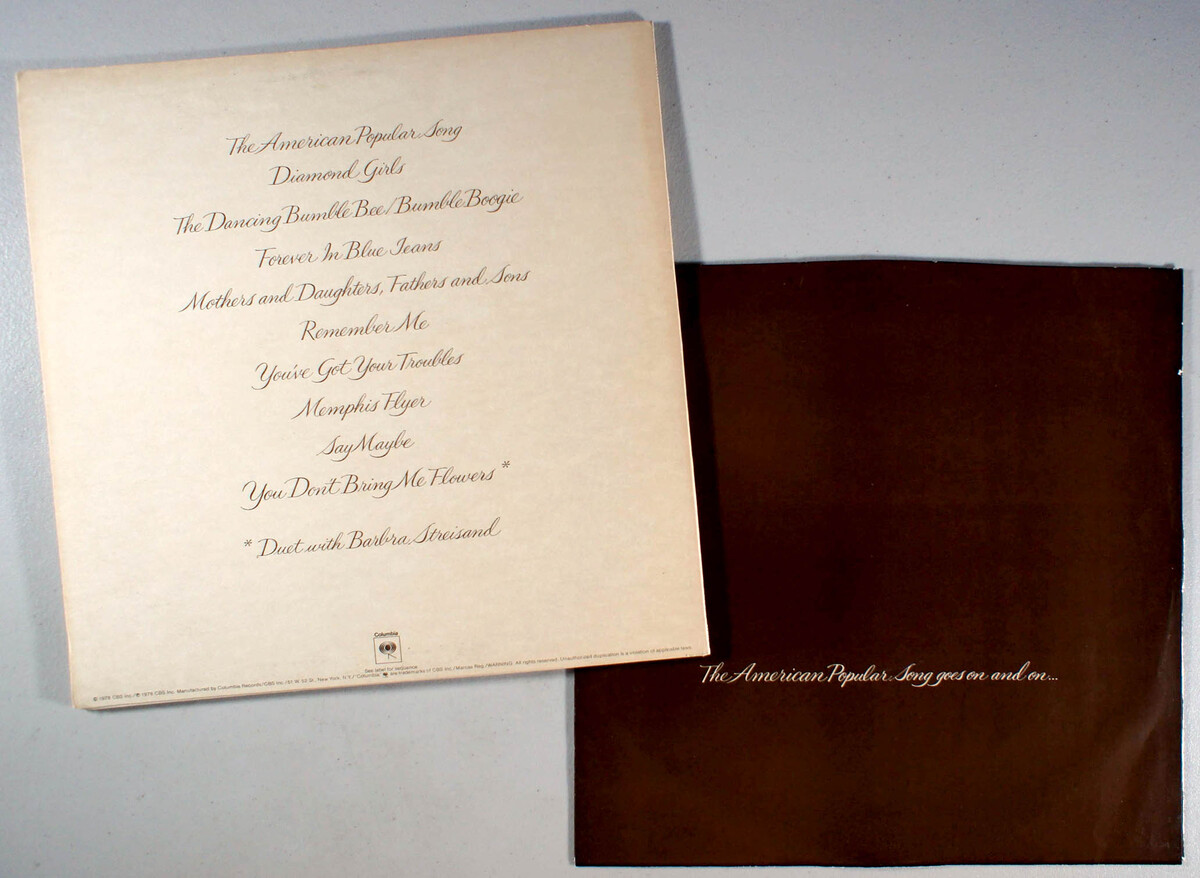 The American Popular Song
Diamond Girls
The Dancing Bumble Bee/Bumble Boogie
Forever In Blue Jeans
Mothers and Daughters, Fathers and Sons
Remember Me
You've Got Your Troubles
Memphis Flyer
Say Maybe
You Don't Bring Me Flowers*
* Duet with Barbra Streisand
Columbia
See label for sequence
© 1978 CBS Inc./℗ 1978 CBS Inc. Manufactured by Columbia Records/CBS Inc./51 W. 52 St., New York, N.Y./"Columbia," are trademarks of CBS Inc./Marcas Reg./WARNING: All rights reserved. Unauthorized duplication is a violation of applicable laws.
The American Popular Song goes on and on...